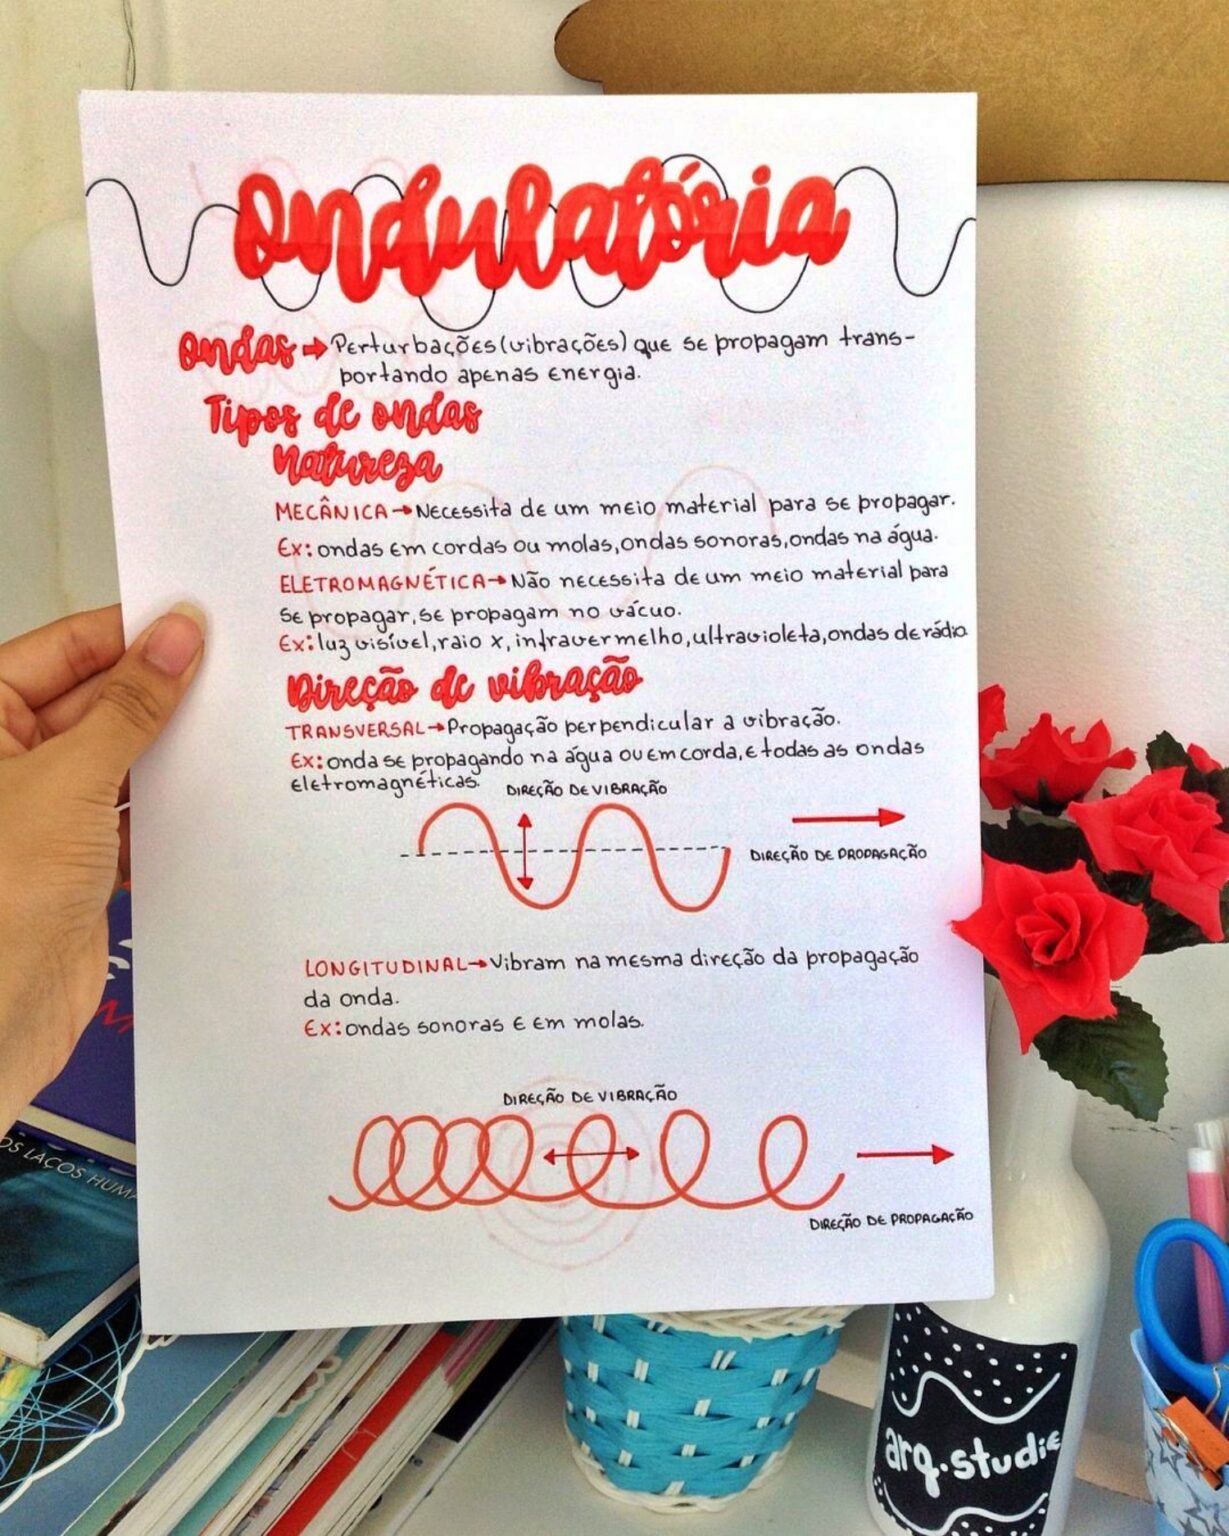 Ondulatória
Ondas → Perturbações (vibrações) que se propagam trans-
portando apenas energia.
Tipos de ondas
Natureza
MECÂNICA → Necessita de um meio material para se propagar.
Ex: ondas em cordas ou molas, ondas sonoras, ondas na água.
ELETROMAGNÉTICA → Não necessita de um meio material para
se propagar, se propagam no vácuo.
Ex: luz visível, raio x, infravermelho, ultravioleta, ondas de rádio
Direção de vibração
TRANSVERSAL → Propagação perpendicular a vibração.
Ex: onda se propagando na água ou em corda, e todas as ondas
eletromagnéticas.
DIREÇÃO DE VIBRAÇÃO
DIREÇÃO DE PROPAGAÇÃO
LONGITUDINAL → Vibram na mesma direção da propagação
da onda.
Ex: ondas sonoras e em molas.
DIREÇÃO DE VIBRAÇÃO
DIREÇÃO DE PROPAGAÇÃO
OS LAÇOS HUMA
arq.studie